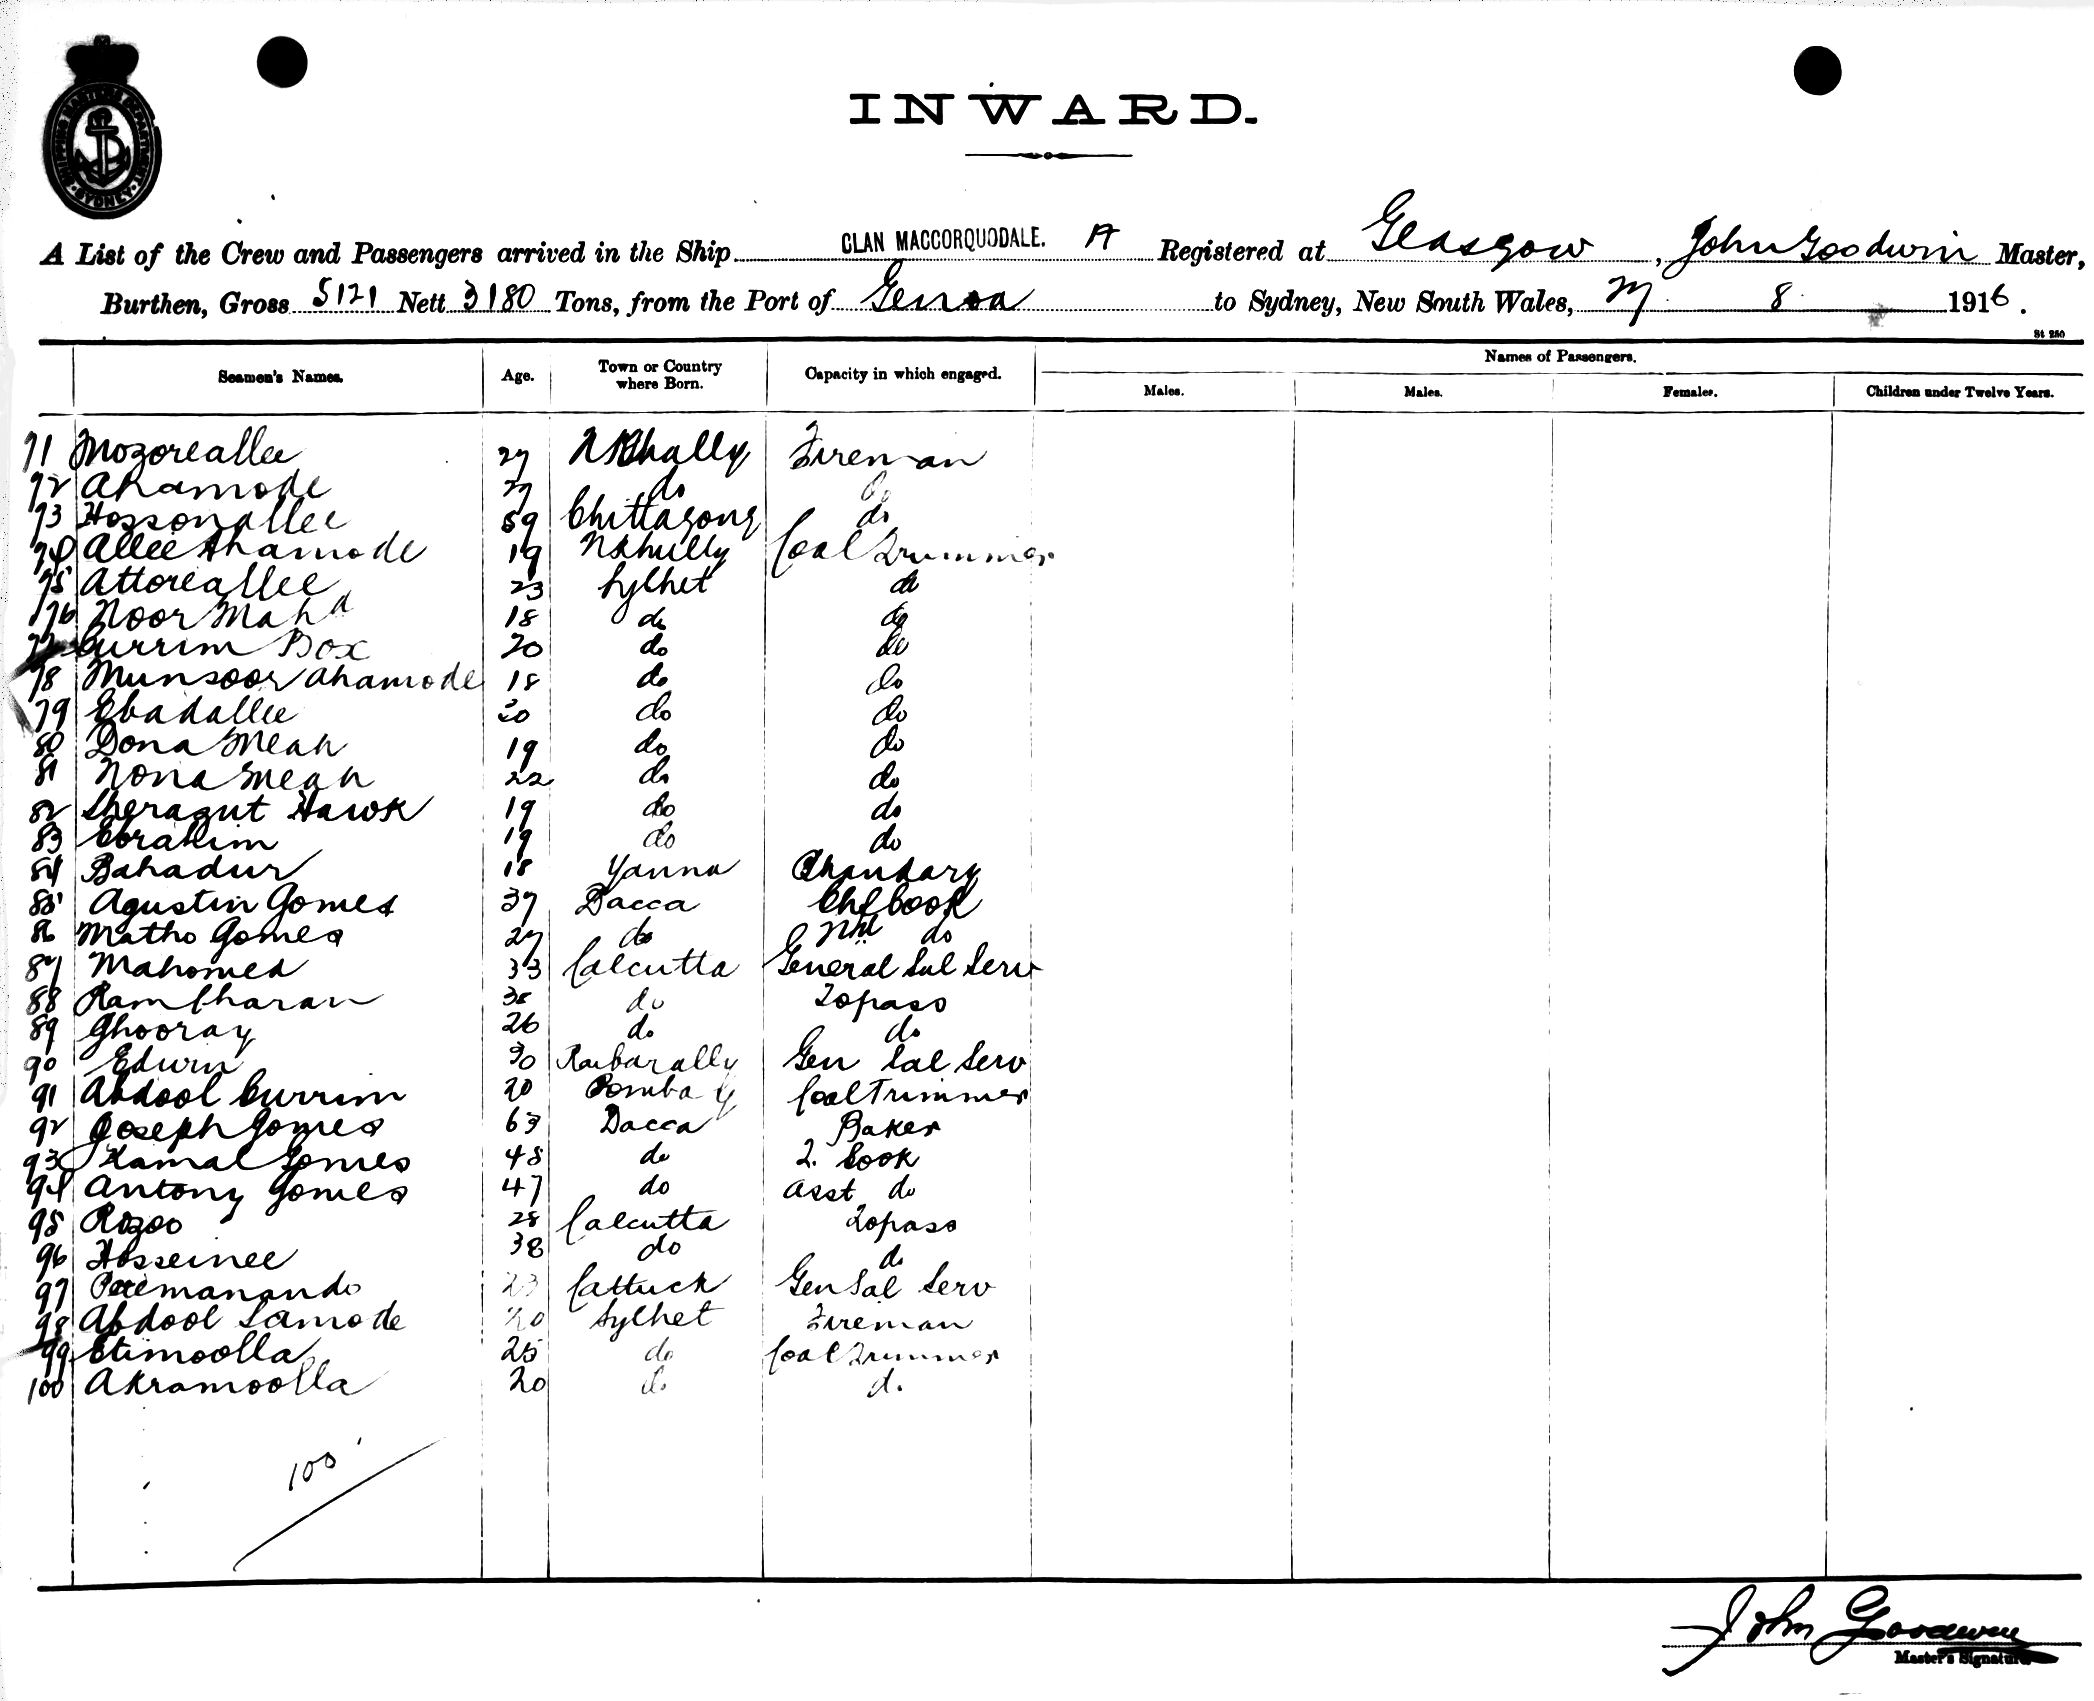 SHIPPING MASTER'S DEPARTMENT
SYDNEY
INWARD.
A List of the Crew and Passengers arrived in the Ship CLAN MACCORQUODALE. Registered at Glasgow, John Goodwin Master,
Burthen, Gross 5121 Nett 3180 Tons, from the Port of Genoa to Sydney, New South Wales, 8 1916.
St 250
Seamen's Names. Age. Town or Country where Born. Capacity in which engaged. Names of Passengers.
Males. Males. Females. Children under Twelve Years.
71 Mozoreallee 27 Fireman
72 Ahamode 27 do do
73 Hossonallee 59 Chittagong do
74 Allee Ahamode 19 Nkhully Coal Trimmer
75 Attoreallee 23 Sylhet do
76 Noor Mahd 18 do do
77 Currim Box 20 do do
78 Munsoor Ahamode 18 do do
79 Ebadallee 20 do do
80 Dona Meah 19 do do
81 Nona Meah 22 do do
82 Sheragut Hawk 19 do do
83 Ebrahim 19 do do
84 Bahadur 18 Yanna Bhandary
85 Agustin Gomes 37 Dacca Chf Cook
86 Matho Gomes 27 do do
87 Mahomed 33 Calcutta General Sal Serv
88 Ramcharan 38 do Topaso
89 Ghooray 26 do do
90 Edwin 30 Raibarally Gen Sal Serv
91 Abdool Currim 20 Bombay Coal Trimmer
92 Joseph Gomes 63 Dacca Baker
93 Kamal Gomes 48 do 2. Cook
94 Antony Gomes 47 do Asst do
95 Rozoo 28 Calcutta Topaso
96 Hosseinee 38 do do
97 Peremanando 23 Cattuck Gen Sal Serv
98 Abdool Samode 20 Sylhet Fireman
99 Etimoolla 25 do Coal Trimmer
100 Akramoolla 20 do do
100
John Goodwin
Master's Signature